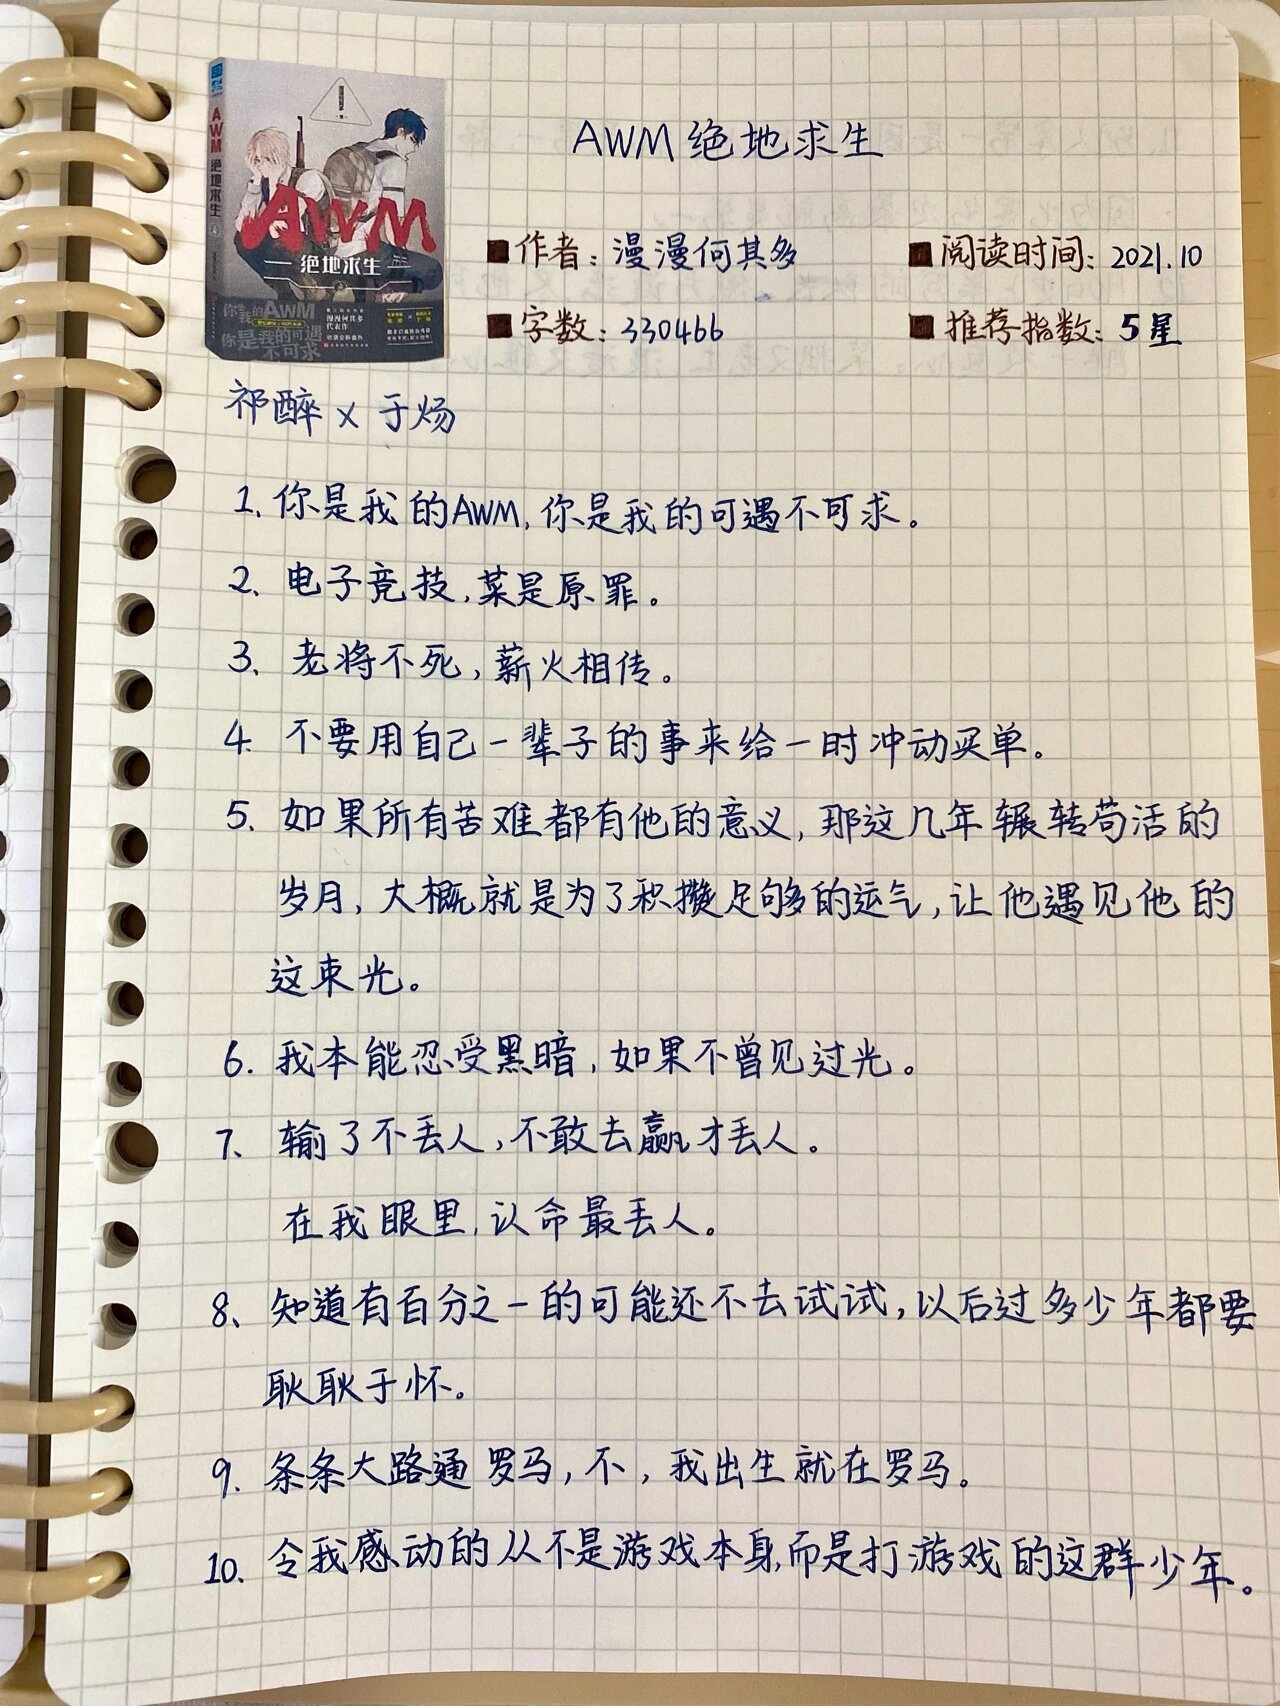 AWM 绝地求生
AWM 绝地求生
AWM
绝地求生
你我的AWM
漫漫何其多
代表作
你是我的可遇
不可求
■作者：漫漫何其多
■阅读时间：2021.10
■字数：330466
■推荐指数：5星
祁醉×于炀
1、你是我的AWM，你是我的可遇不可求。
2、电子竞技，菜是原罪。
3、老将不死，薪火相传。
4、不要用自己一辈子的事来给一时冲动买单。
5、如果所有苦难都有他的意义，那这几年辗转苟活的
岁月，大概就是为了积攒足够的运气，让他遇见他的
这束光。
6.我本能忍受黑暗，如果不曾见过光。
7、输了不丢人，不敢去赢才丢人。
在我眼里，认命最丢人。
8、知道有百分之一的可能还不去试试，以后过多少年都要
耿耿于怀。
9、条条大路通罗马，不，我出生就在罗马。
10、令我感动的从不是游戏本身，而是打游戏的这群少年。